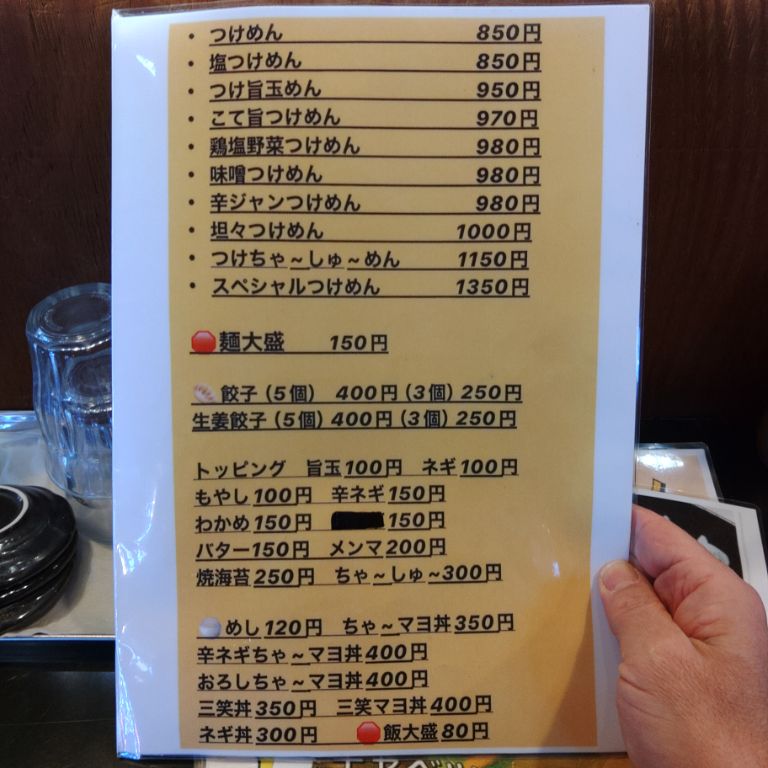 ・ つけめん 850円
・ 塩つけめん 850円
・ つけ旨玉めん 950円
・ こて旨つけめん 970円
・ 鶏塩野菜つけめん 980円
・ 味噌つけめん 980円
・ 辛ジャンつけめん 980円
・ 坦々つけめん 1000円
・ つけちゃ~しゅ~めん 1150円
・ スペシャルつけめん 1350円
麺大盛 150円
餃子(5個) 400円(3個) 250円
生姜餃子(5個) 400円(3個) 250円
トッピング 旨玉100円 ネギ100円
もやし100円 辛ネギ150円
わかめ150円 150円
バター150円 メンマ200円
焼海苔250円 ちゃ~しゅ~300円
めし120円 ちゃ~マヨ丼350円
辛ネギちゃ~マヨ丼400円
おろしちゃ~マヨ丼400円
三笑丼350円 三笑マヨ丼400円
ネギ丼300円 飯大盛80円